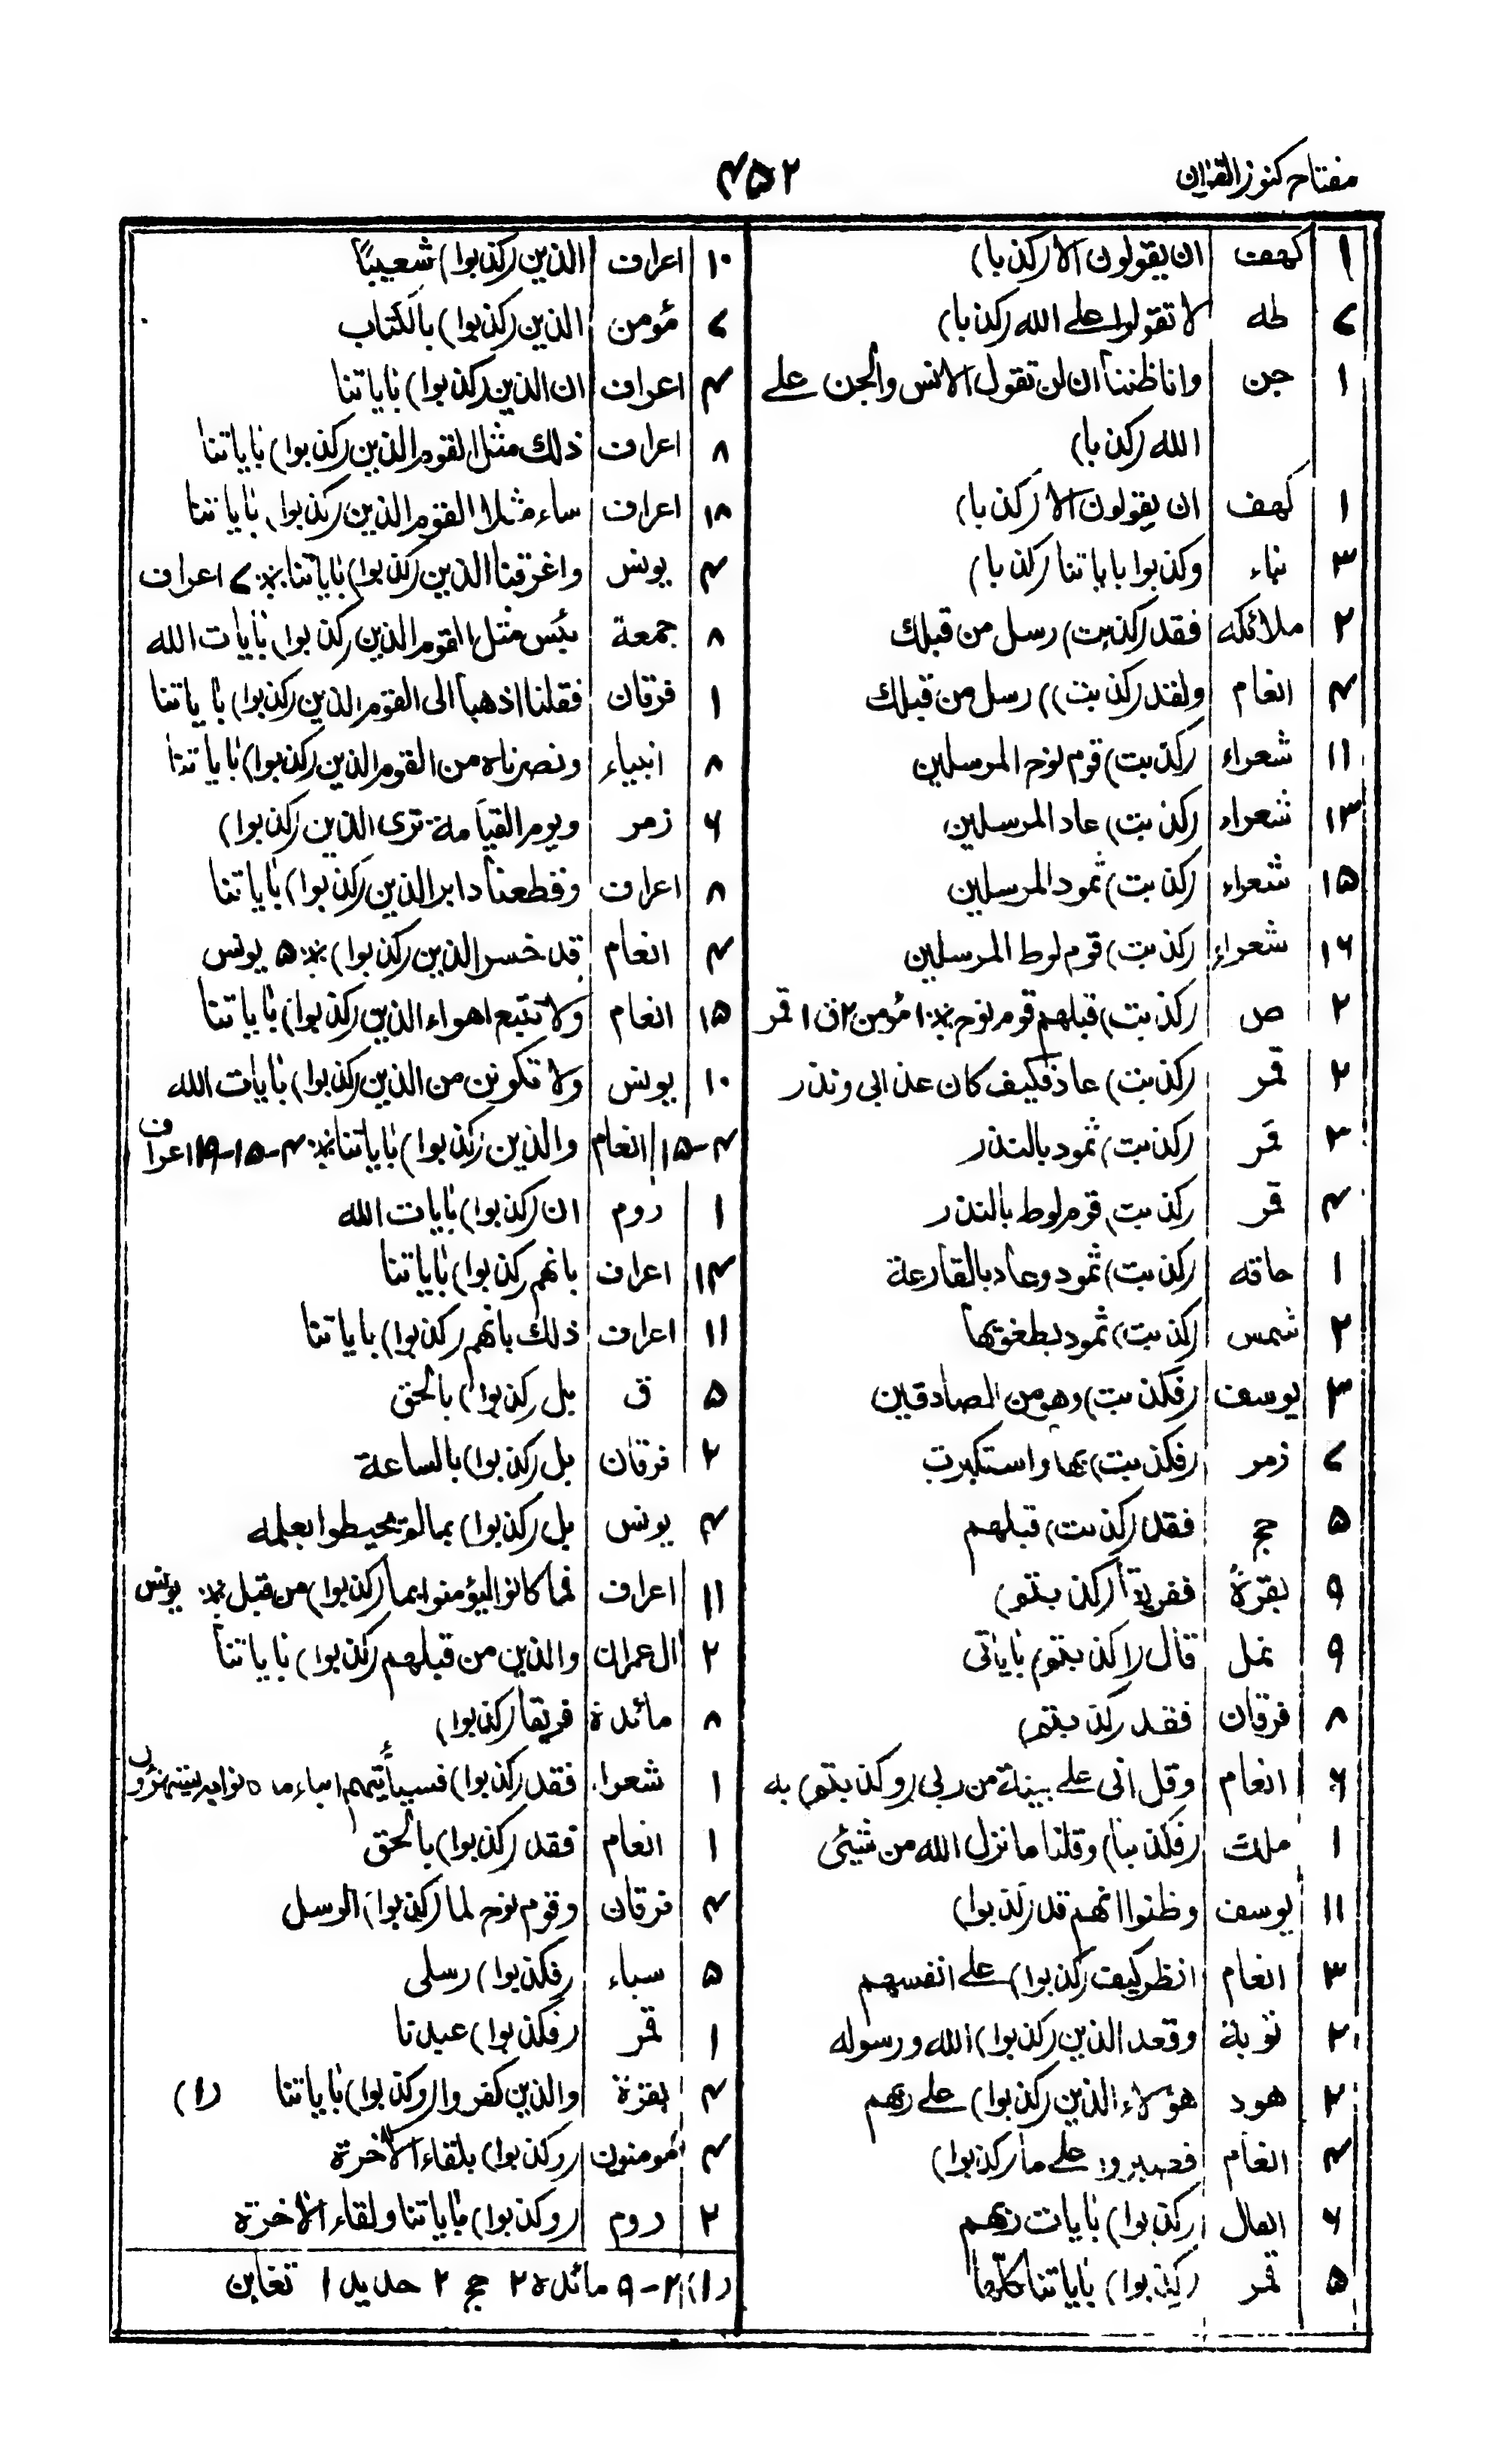 مفتاح كنوز القران
۴۵۲
۱ كهف ان يقولون الا (كذبا)
۷ طه لا تقولوا على الله (كذبا)
۱ جن وانا ظننا ان لن تقول الانس والجن على
الله (كذبا)
۱ كهف ان يقولون الا (كذبا)
۳ نباء وكذبوا باياتنا (كذبا)
۲ ملائكه فقد (كذبت) رسل من قبلك
۴ انعام ولقد (كذبت)) رسل من قبلك
۱۱ شعراء (كذبت) قوم نوح المرسلين
۱۳ شعراء (كذبت) عاد المرسلين
۱۵ شعراء (كذبت) ثمود المرسلين
۱۶ شعراء (كذبت) قوم لوط المرسلين
۲ ص (كذبت) قبلهم قوم نوح ※ ۱ مؤمن ۲ ق ۱ قمر
۲ قمر (كذبت) عاد فكيف كان عذابى ونذر
۲ قمر (كذبت) ثمود بالنذر
۴ قمر (كذبت) قوم لوط بالنذر
۱ حاقه (كذبت) ثمود وعاد بالقارعة
۲ شمس (كذبت) ثمود بطغوىها
۳ يوسف (فكذبت) وهو من الصادقين
۷ زمر (فكذبت) بها واستكبرت
۵ حج فقد (كذبت) قبلهم
۹ بقرة ففريقا (كذبتم)
۹ نمل قال (اكذبتم) باياتى
۸ فرقان فقد (كذبتم)
۶ انعام وقل انى على بينة من ربى (وكذبتم) به
۱ ملك (فكذبنا) وقلنا ما نزل الله من شيئى
۱۱ يوسف وظنوا انهم قد (كذبوا)
۳ انعام انظر كيف (كذبوا) على انفسهم
۲ توبة وقعد الذين (كذبوا) الله ورسوله
۲ هود هؤلاء الذين (كذبوا) على ربهم
۴ انعام فصبروا على ما (كذبوا)
۶ انفال (كذبوا) بايات ربهم
۵ قمر (كذبوا) باياتنا كلها
۱۰ اعراف الذين (كذبوا) شعيبا
۷ مؤمن الذين (كذبوا) بالكتاب
۴ اعراف ان الذين (كذبوا) باياتنا
۸ اعراف ذلك مثل القوم الذين (كذبوا) باياتنا
۱۸ اعراف ساء مثلا القوم الذين (كذبوا) باياتنا
۴ يونس واغرقنا الذين (كذبوا) باياتنا ※ ۷ اعراف
۸ جمعة بئس مثل القوم الذين (كذبوا) بايات الله
۱ فرقان فقلنا اذهبا الى القوم الذين (كذبوا) باياتنا
۸ انبياء ونصرناه من القوم الذين (كذبوا) باياتنا
۶ زمر ويوم القيامة ترى الذين (كذبوا)
۸ اعراف وقطعنا دابر الذين (كذبوا) باياتنا
۴ انعام قد خسر الذين (كذبوا) ※ ۵ يونس
۱۵ انعام ولا تتبع اهواء الذين (كذبوا) باياتنا
۱۰ يونس ولا تكونن من الذين (كذبوا) بايات الله
۴-۱۵ انعام والذين (كذبوا) باياتنا ※ ۴-۱۵-۱۹ اعراف
۱ روم ان (كذبوا) بايات الله
۱۴ اعراف بانهم (كذبوا) باياتنا
۱۱ اعراف ذلك بانهم (كذبوا) باياتنا
۵ ق بل (كذبوا) بالحق
۲ فرقان بل (كذبوا) بالساعة
۴ يونس بل (كذبوا) بما لم يحيطوا بعلمه
۱۱ اعراف فما كانوا ليؤمنوا بما (كذبوا) من قبل ※ يونس
۲ ال عمران والذين من قبلهم (كذبوا) باياتنا
۸ مائدة فريقا (كذبوا)
۱ شعراء فقد (كذبوا) فسيأتيهم
۱ انعام فقد (كذبوا) بالحق
۴ فرقان وقوم نوح لما (كذبوا) الرسل
۵ سباء (فكذبوا) رسلى
۱ قمر (فكذبوا) عبدنا
۴ بقرة والذين كفروا (وكذبوا) باياتنا (۱)
۴ مومنون (وكذبوا) بلقاء الاخرة
۲ روم (وكذبوا) باياتنا ولقاء الاخرة
(۱) ۲-۹ مائدة ۲ حج ۲ حديد ۱ تغابن